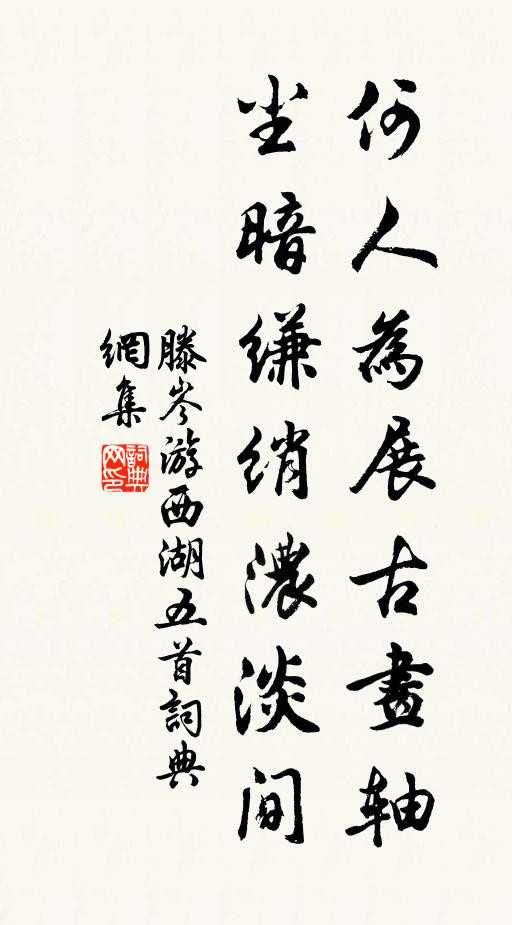 何人為展古畫軸
尘暗縑綃濃淡間
滕岑游西湖五首詞典
網集
詞典
网印